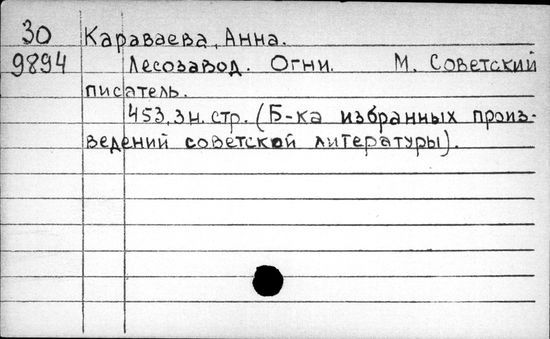 30 Караваева, Анна.
9894 Лесозавод. Огни. М. Советский
писатель.
453, 3 н. стр. (Б-ка избранных произ-
ведений советской литературы).